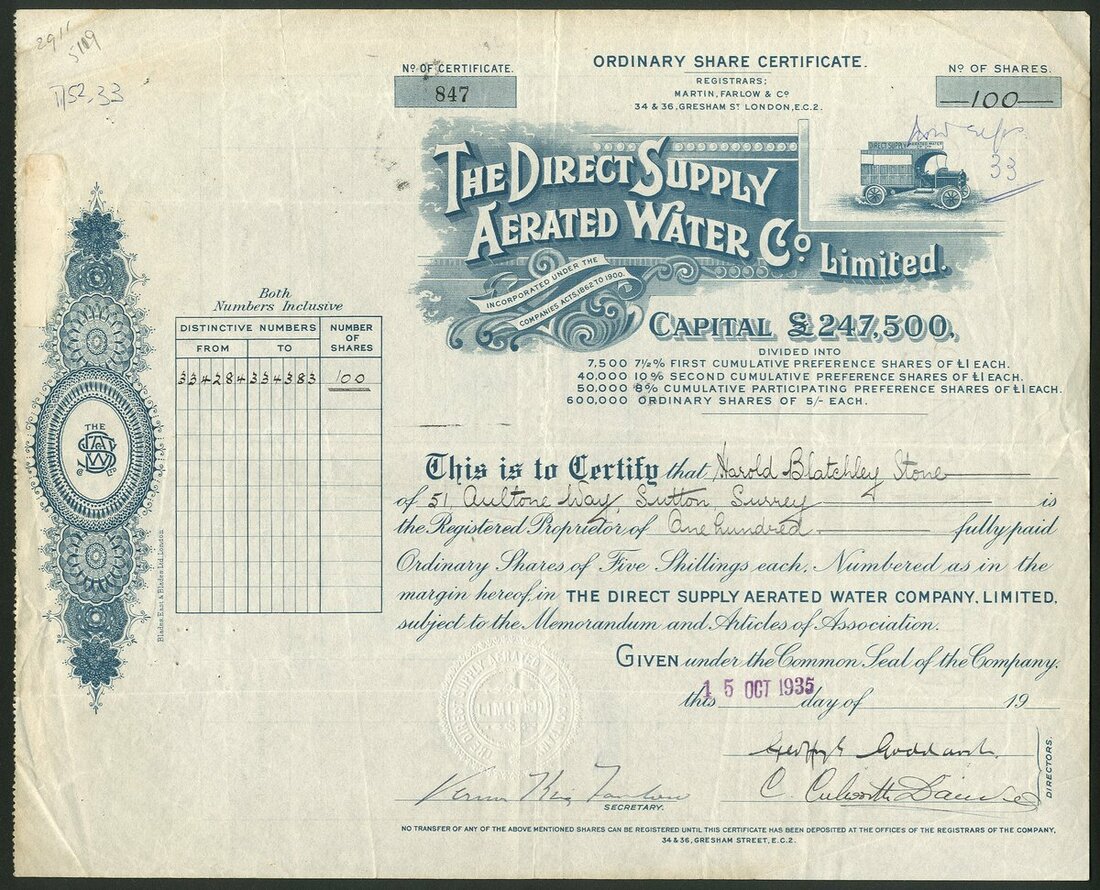 2911
5119
T/52.33
Nº OF CERTIFICATE.
847
ORDINARY SHARE CERTIFICATE.
REGISTRARS;
MARTIN, FARLOW & Cº
34 & 36, GRESHAM ST LONDON, E.C.2.
Nº OF SHARES.
100
33
THE DIRECT SUPPLY
AERATED WATER Cº Limited.
DIRECT SUPPLY AERATED WATER
INCORPORATED UNDER THE
COMPANIES ACTS, 1862 TO 1900.
CAPITAL £247,500,
DIVIDED INTO
7,500 7½% FIRST CUMULATIVE PREFERENCE SHARES OF £1 EACH.
40,000 10% SECOND CUMULATIVE PREFERENCE SHARES OF £1 EACH.
50,000 8% CUMULATIVE PARTICIPATING PREFERENCE SHARES OF £1 EACH.
600,000 ORDINARY SHARES OF 5/- EACH.
Both
Numbers Inclusive
DISTINCTIVE NUMBERS NUMBER OF SHARES
FROM TO
334284 334383 100
THE
Blades, East & Blades Ltd London
This is to Certify that Harold Blatchley Stone
of 51, Aultone Way, Sutton, Surrey is
the Registered Proprietor of One hundred fully paid
Ordinary Shares of Five Shillings each, Numbered as in the
margin hereof, in THE DIRECT SUPPLY AERATED WATER COMPANY, LIMITED,
subject to the Memorandum and Articles of Association.
GIVEN under the Common Seal of the Company,
this 15 OCT 1935 day of 19
THE DIRECT SUPPLY AERATED WATER COMPANY
LIMITED
Goddard.
SECRETARY.
DIRECTORS.
NO TRANSFER OF ANY OF THE ABOVE MENTIONED SHARES CAN BE REGISTERED UNTIL THIS CERTIFICATE HAS BEEN DEPOSITED AT THE OFFICES OF THE REGISTRARS OF THE COMPANY,
34 & 36, GRESHAM STREET, E.C.2.